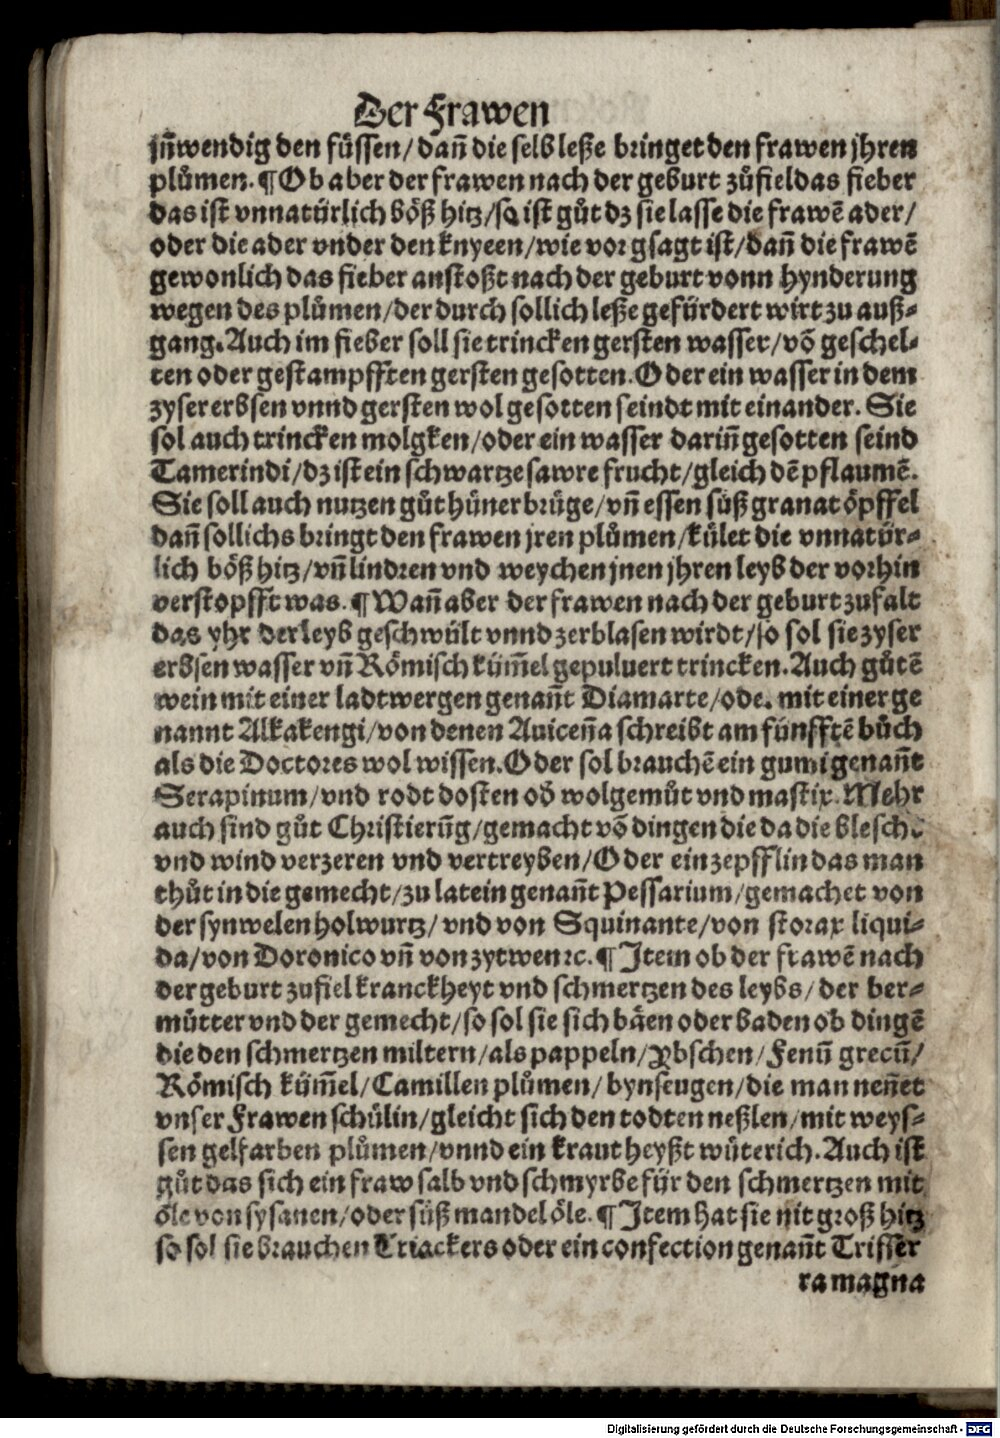 Der Frawen
jñwendig den füssen/ dañ die selb leße bringet den frawen jhren
plůmen. ¶ Ob aber der frawen nach der geburt zůfiel das fieber
das ist vnnatürlich böß hitz/ so ist gůt dz sie lasse die frawē ader/
oder die ader vnder den knyeen/ wie vor gsagt ist/ dañ die frawē
gewonlich das fieber anstoßt nach der geburt vonn hynderung
wegen des plůmen/ der durch sollich leße gefürdert wirt zu auß⸗
gang. Auch im fieber soll sie trincken gersten wasser/ vō geschel⸗
ten oder gestampfften gersten gesotten. Oder ein wasser in dem
zyser erbsen vnnd gersten wol gesotten seindt mit einander. Sie
sol auch trincken molgken/ oder ein wasser dariñ gesotten seind
Tamerindi/ dz ist ein schwartze sawre frucht/ gleich dē pflaumē.
Sie soll auch nutzen gůt hüner brüge/ vñ essen süß granat öpffel
dañ sollichs bringt den frawen jren plůmen/ kület die vnnatür⸗
lich böß hitz/ vñ lindren vnd weychen jnen jhren leyb der vorhin
verstopfft was. ¶ Wañ aber der frawen nach der geburt zufalt
das yhr der leyb geschwült vnnd zerblasen wirdt/ so sol sie zyser
erbsen wasser vñ Römisch küm̄el gepuluert trincken. Auch gůtē
wein mit einer ladtwergen genañt Diamarte/ ode. mit einer ge
nannt Alkakengi/ von denen Auiceña schreibt am fünfftē bůch
als die Doctores wol wissen. Oder sol brauchē ein gumi genañt
Serapinum/ vnd rodt dosten oð wolgemůt vnd mastix. Mehr
auch sind gůt Christierūg/ gemacht vō dingen die da die blesch.
vnd wind verzeren vnd vertreyben/ Oder ein zepfflin das man
thůt in die gemecht/ zu latein genañt Pessarium/ gemachet von
der synwelen holwurtz/ vnd von Squinante/ von storax liqui⸗
da/ von Doronico vñ von zytwen ꝛc. ¶ Item ob der frawē nach
der geburt zufiel kranckheyt vnd schmertzen des leybs/ der ber⸗
můtter vnd der gemecht/ so sol sie sich bäen oder baden ob dingē
die den schmertzen miltern/ als pappeln/ ybschen/ Fenū grecū/
Römisch küm̄el/ Camillen plůmen/ bynseugen/ die man neñet
vnser Frawen schülin/ gleicht sich den todten neßlen/ mit weys⸗
sen gelfarben plůmen/ vnnd ein kraut heyßt wüterich. Auch ist
gůt das sich ein fraw salb vnd schmyrbe für den schmertzen mit
öle von sysanen/ oder süß mandel öle. ¶ Item hat sie nit groß hitz
so sol sie brauchen Triackers oder ein confection genañt Trisser
ra magna
Digitalisierung gefördert durch die Deutsche Forschungsgemeinschaft - DFG